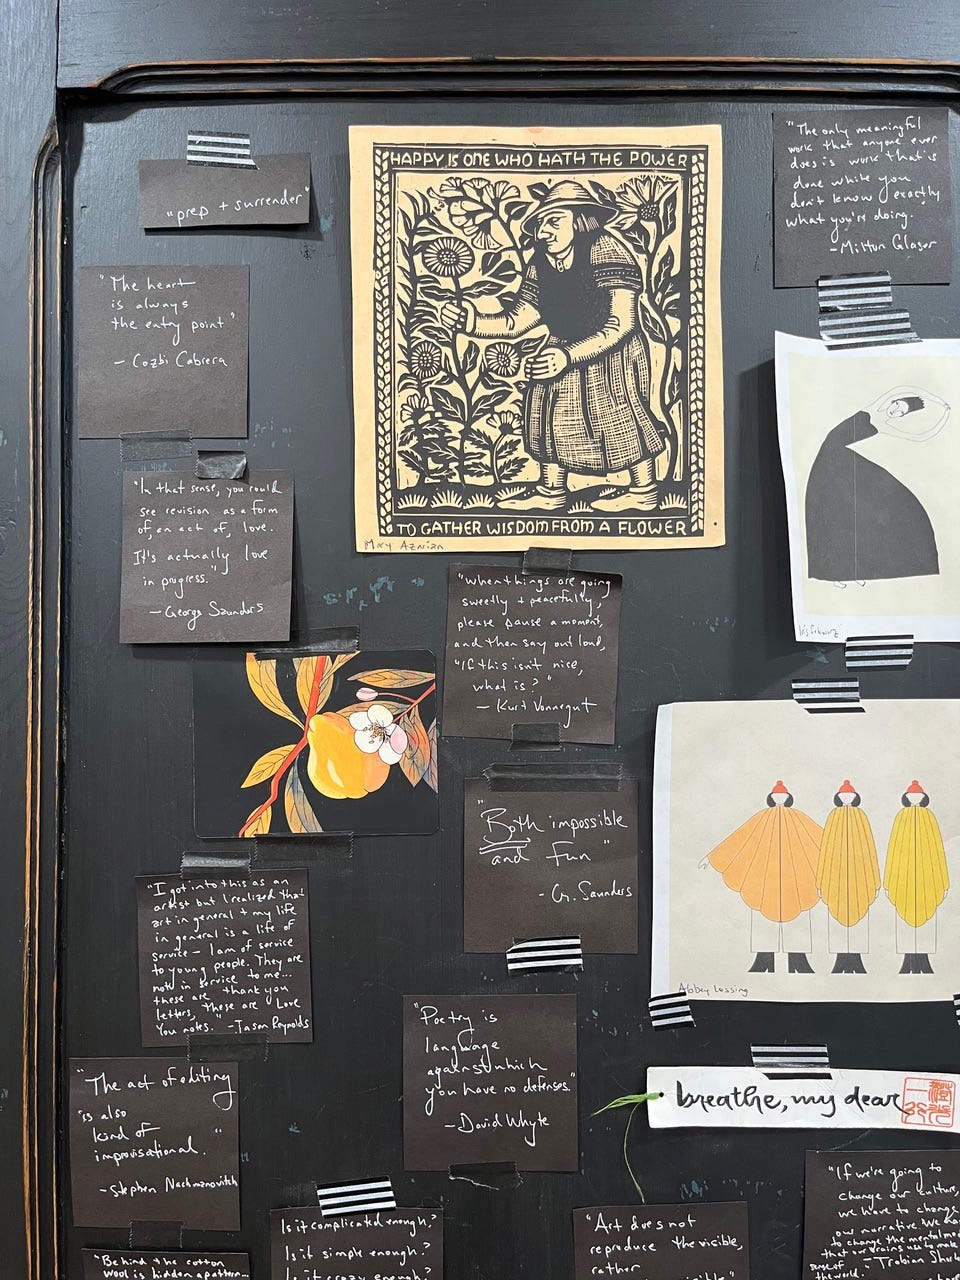 "prep + surrender"
HAPPY IS ONE WHO HATH THE POWER
TO GATHER WISDOM FROM A FLOWER
Mary Azarian
"The only meaningful
work that anyone ever
does is work that is
done while you
don't know exactly
what you're doing."
- Milton Glaser
"The heart
is always
the entry point"
- Cozbi Cabrera
"In that sense, you could
see revision as a form
of, an act of, love.
It's actually love
in progress."
- George Saunders
"When things are going
sweetly + peacefully,
please pause a moment,
and then say out loud,
"If this isn't nice,
what is?"
- Kurt Vonnegut
Iris Schwarz
"Both impossible
and fun"
- G. Saunders
Abbey Lossing
"I got into this as an
artist but I realized that
art in general + my life
in general is a life of
service - I am of service
to young people. They are
not in service to me...
these are thank you
letters, these are love
you notes." - Jason Reynolds
"Poetry is
language
against which
you have no defenses."
- David Whyte
breathe, my dear
"The act of editing
is also
kind of
improvisational."
- Stephen Nachmanovitch
"Behind the cotton
wool is hidden a pattern...
Is it complicated enough?
Is it simple enough?
Is it crazy enough?
"Art does not
reproduce the visible,
rather
visible"
"If we're going to
change our culture,
we have to change
our narrative. We have
to change the mental
that our brains use to make
sense of
the world." - Trabian